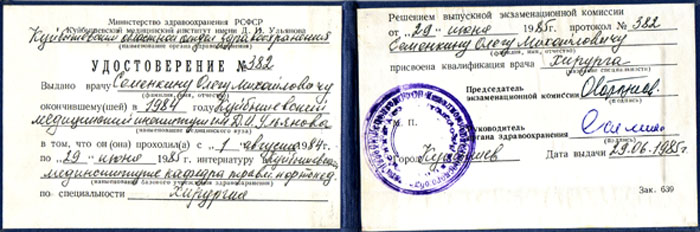 Министерство здравоохранения РСФСР
Куйбышевский медицинский институт имени Д. И. Ульянова
Куйбышевский областной отдел здравоохранения
(наименование органа здравоохранения)
УДОСТОВЕРЕНИЕ № 382
Выдано врачу Семенкину Олегу Михайловичу
(фамилия, имя, отчество)
окончившему(шей) в 1984 году Куйбышевский
медицинский институт им Д.И. Ульянова
(наименование медицинского вуза)
в том, что он (она) прохо́дил(а) с „1" августа 1984 г.
по „29" июня 1985 г. интернатуру Куйбышевск
мединституте кафедра травм. ортопед
(наименование базового учреждения здравоохранения)
по специальности Хирургия
Решением выпускной экзаменационной комиссии
от „29" июня 1985 г. протокол № 382
Семенкину Олегу Михайловичу
(фамилия, имя, отчество)
присвоена квалификация врача хирурга
(название специальности)
Председатель
экзаменационной комиссии
(подпись)
М. П.
Руководитель
органа здравоохранения
(подпись)
Город Куйбышев Дата выдачи 29.06.1985 г.
Зак. 639